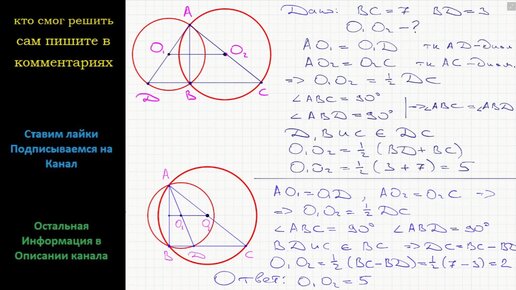 кто смог решить
сам пишите в
комментариях
Ставим лайки
Подписываемся на
Канал
Остальная
Информация в
Описании канала
A
O₁
O₂
D
B
C
A
O₁
O
B
D
C
Дано: BC = 7 BD = 3
O₁O₂ - ?
AO₁ = O₁D тк AD-диам.
AO₂ = O₂C тк AC-диам.
=> O₁O₂ = ½ DC
∠ABC = 90°
∠ABD = 90° => ∠ABC = ∠ABD
D, B и C ∈ DC
O₁O₂ = ½ (BD + BC)
O₁O₂ = ½ (3 + 7) = 5
AO₁ = O₁D, AO₂ = O₂C =>
=> O₁O₂ = ½ DC
∠ABC = 90° ∠ABD = 90°
BD и C ∈ BC => DC = BC - BD
O₁O₂ = ½ (BC - BD) = ½ (7 - 3) = 2
Ответ: O₁O₂ = 5